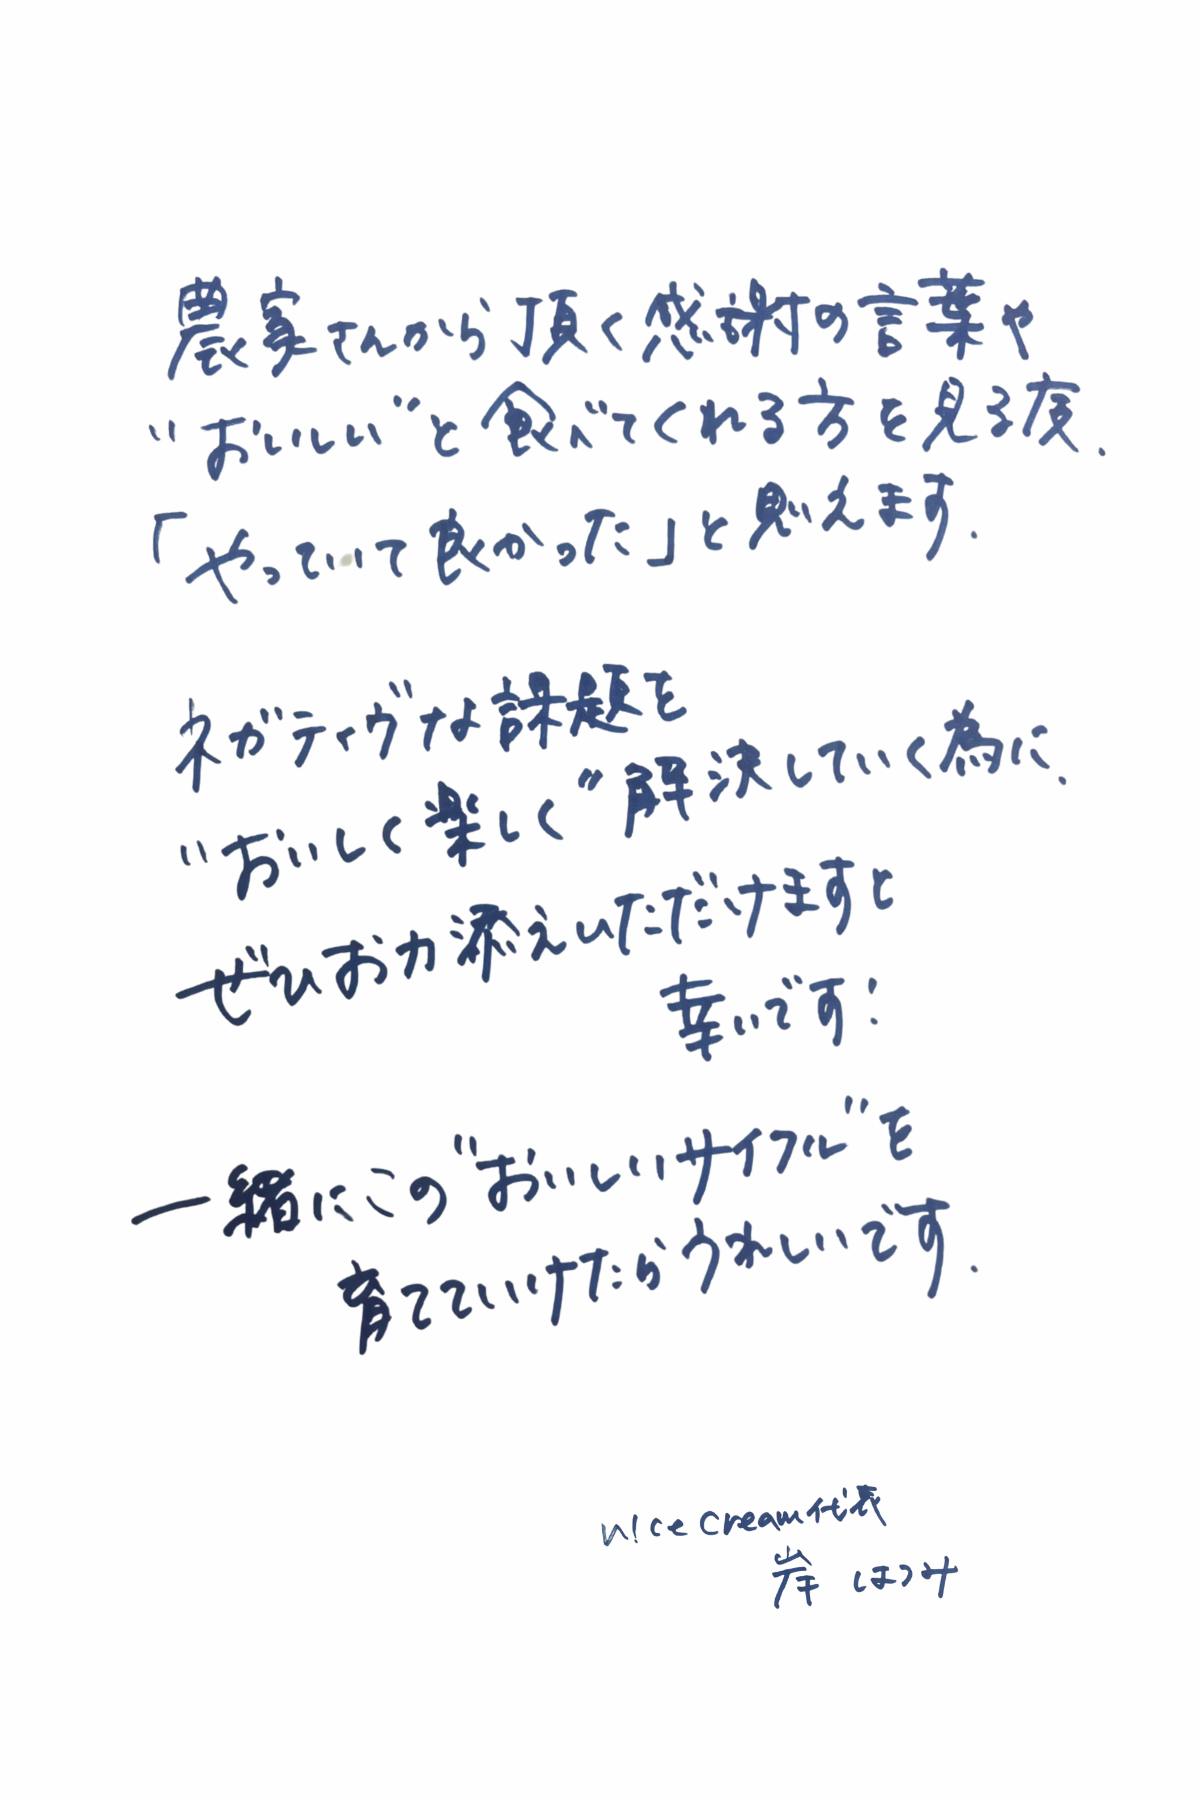 農家さんから頂く感謝の言葉や
"おいしい"と食べてくれる方を見る度、
「やっていて良かった」と思えます。
ネガティヴな課題を
"おいしく楽しく"解決していく為に、
ぜひお力添えいただけますと
幸いです!
一緒にこの"おいしいサイクル"を
育てていけたらうれしいです。
n!ce cream代表
岸 はつみ